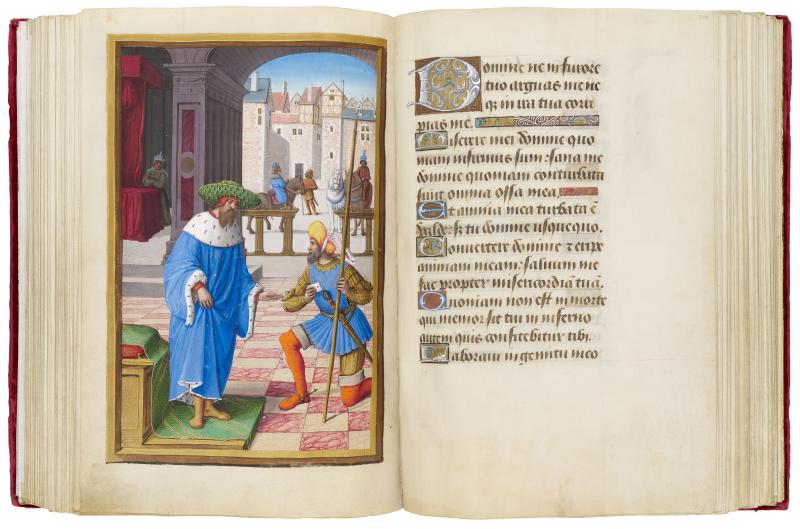 Domine ne in furore
tuo arguas me ne
q3 in ira tua corri
pias me.
Miserere mei domine quo
niam infirmus sum: sana me
domine quoniam conturbata
sunt omnia ossa mea.
Et anima mea turbata ē
valde: sz tu domine usquequo.
Convertere domine et eripe
animam meam: salvum me
fac propter misericordiā tuā.
Quoniam non est in morte
qui memor sit tui in inferno
autem quis confitebitur tibi.
Laboravi in gemitu meo